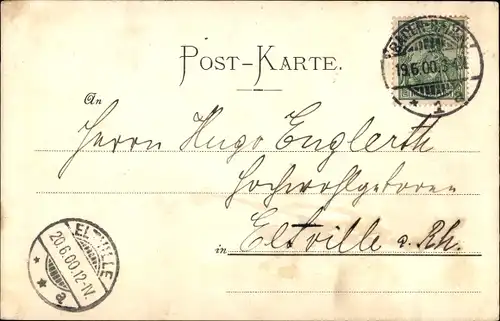 POST-KARTE.
BADEN-BADEN
19.6.00.
* 1
An
Herrn Hugo Englerth
Hochwohlgeboren
in Eltville a. Rh.
ELTVILLE
20.6.00.12-1V.
* * a